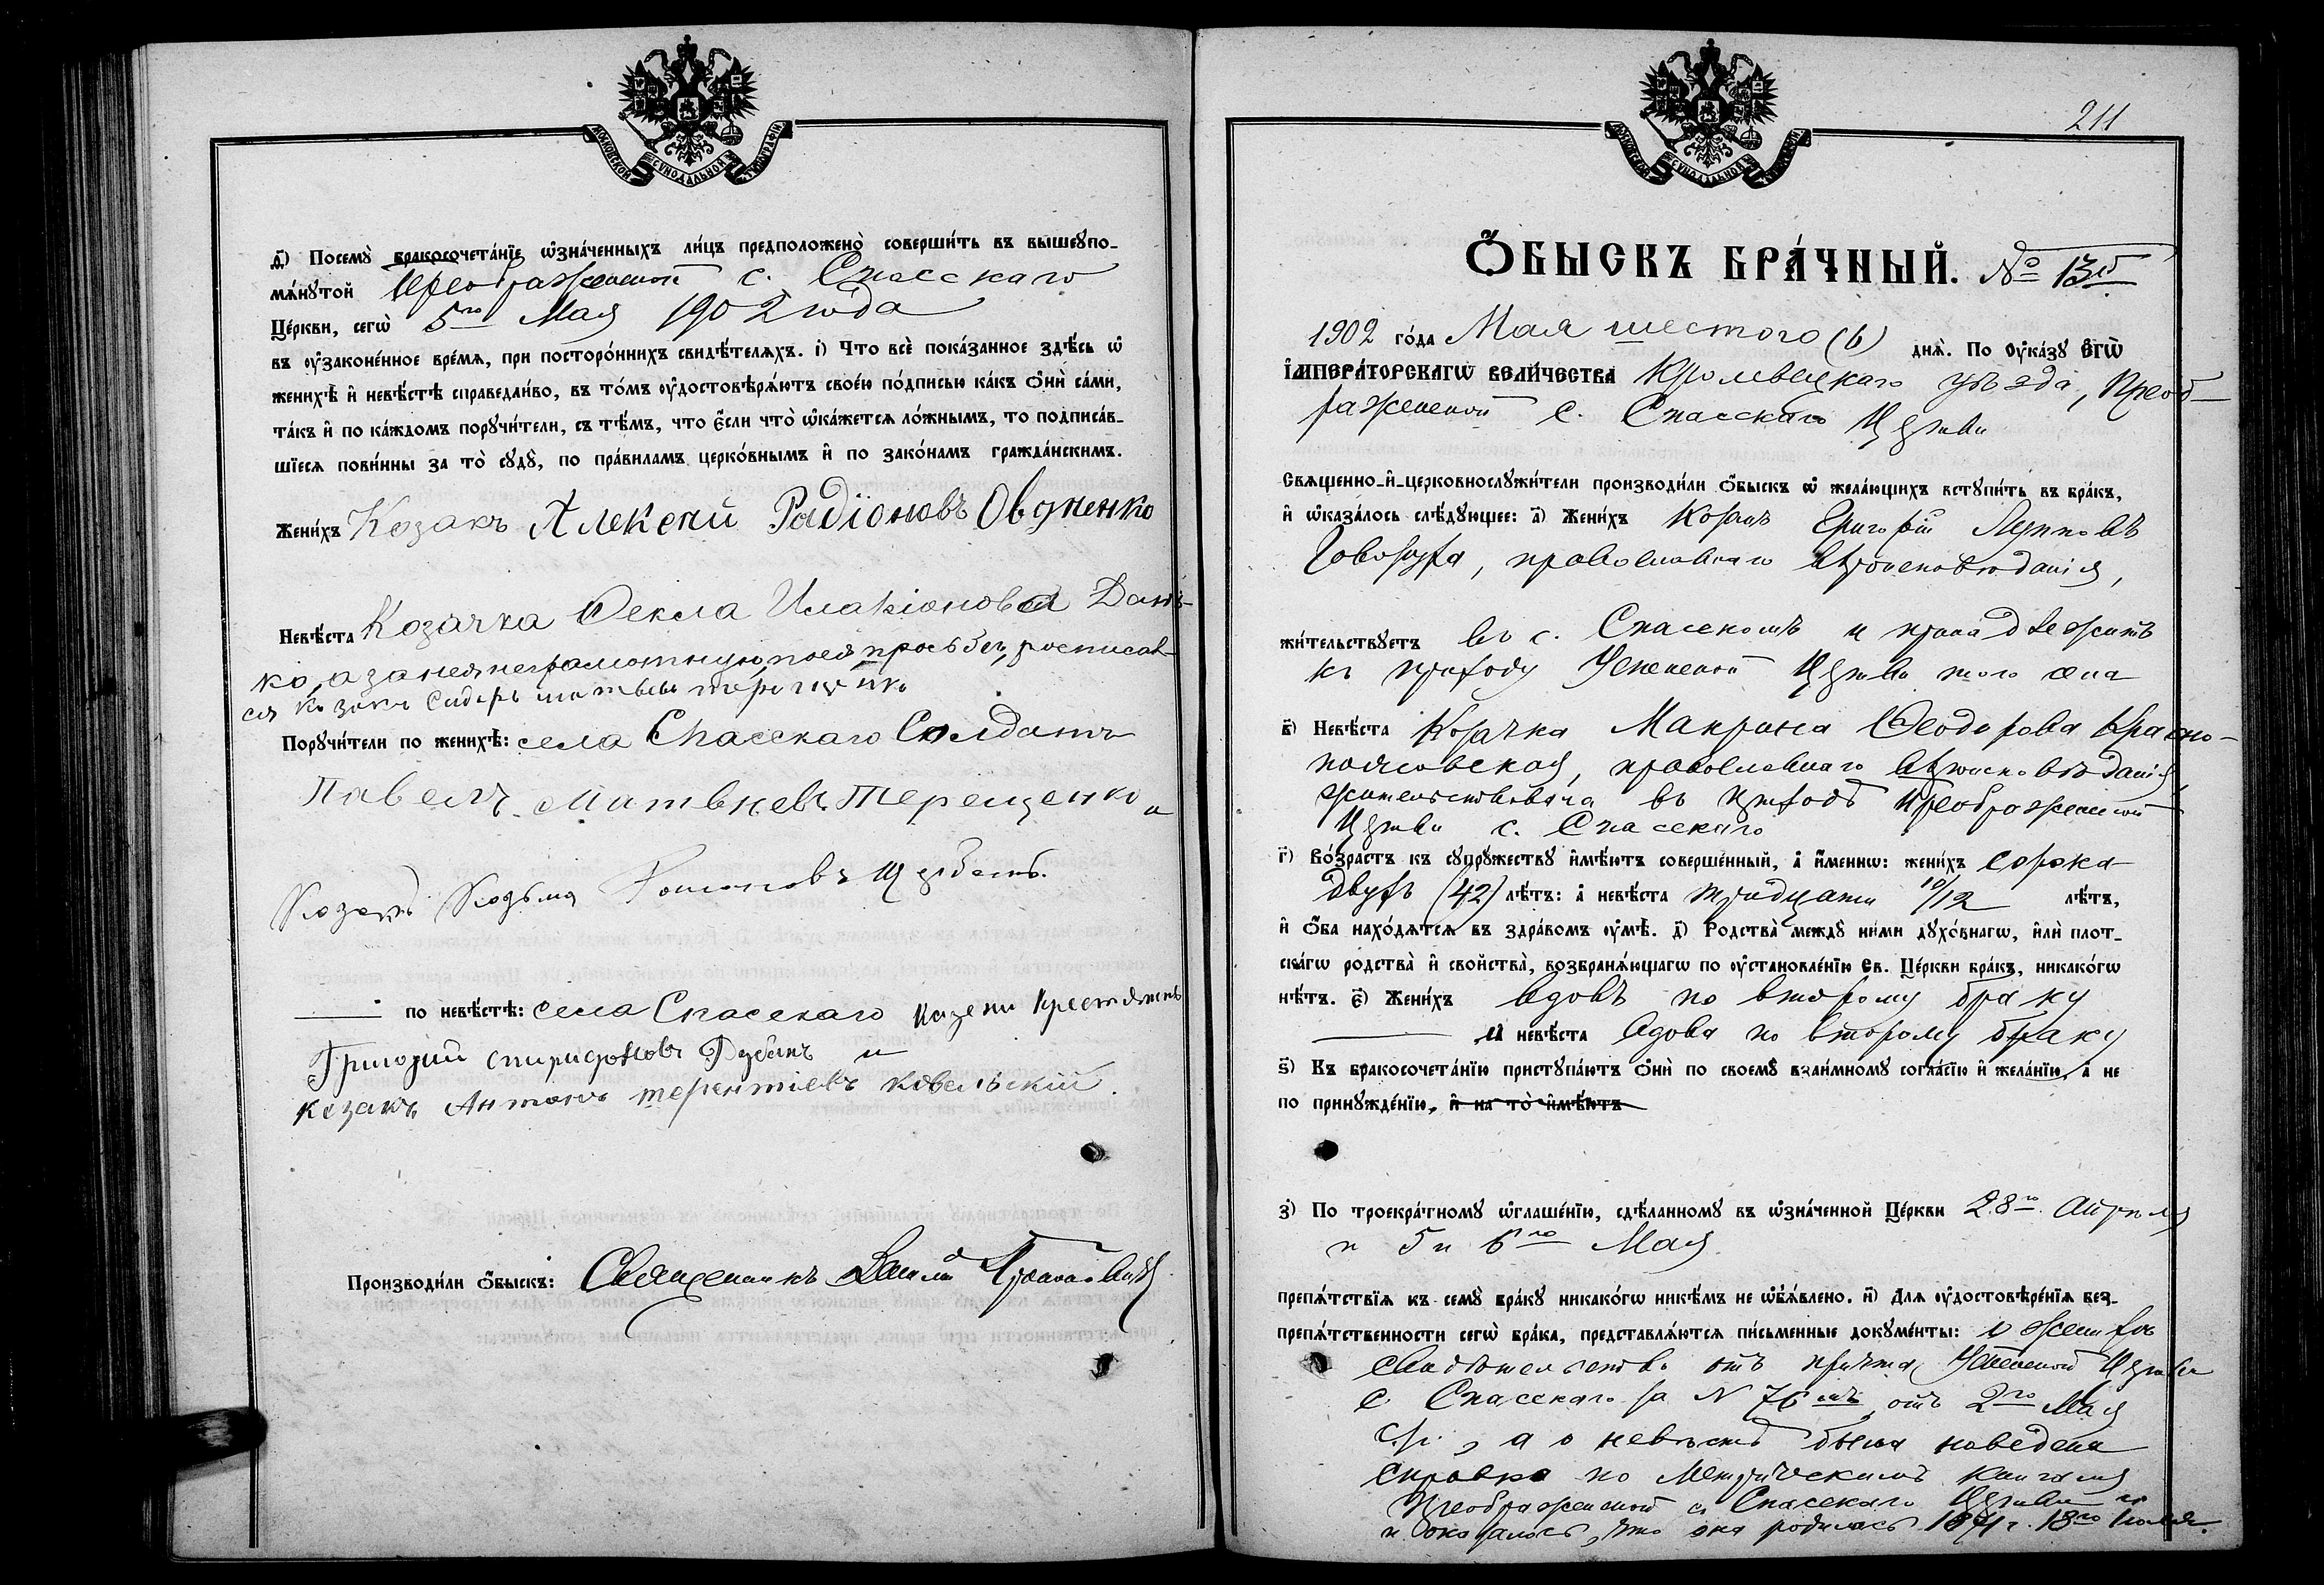 МОСКОВСКОЙ СѴНОДАЛЬНОЙ ТИПОГРАФІИ
ѳ҃) Посемꙋ̀ бракосочета́нїе ѡ҆зна́ченныхъ ли́цъ предположено̀ соверши́ть въ вышеꙋпо-
мѧ́нꙋтой Преображенской с. Спасскаго
Це́ркви, сегѡ̀ 5го Мая 1902 года
въ ᲂу҆законе́нное вре́мѧ, при посторо́ннихъ свидѣ́телѧхъ. і҃) Что всѐ пока́занное здѣ́сь ѡ҆
женихѣ̀ и҆ невѣ́стѣ справедли́во, въ то́мъ ᲂу҆достовѣрѧ́ютъ свое́ю по́дписью ка́къ ѻ҆нѝ са́ми,
та́къ и҆ по ка́ждомъ порꙋчи́тели, съ тѣ́мъ, что є҆́сли что̀ ѡ҆ка́жетсѧ ло́жнымъ, то подписа́в-
шїесѧ пови́нны за то̀ сꙋдꙋ̀, по пра́виламъ церко́внымъ и҆ по зако́намъ гражда́нскимъ.
Жени́хъ Козакъ Алексей Радіоновъ Овдіенко
Невѣ́ста Козачка Ѳекла Иларіонова Дань-
ко, а за нея неграмотную, по ея прозьбе, росписал-
ся Козакъ Сидоръ Матвеевъ Терещенко
Порꙋчи́тели по женихѣ̀: села Спасскаго Солдатъ
Павелъ Матвѣевъ Терещенко и
Козакъ Козьма Щербакъ.
по невѣ́стѣ: села Спасскаго Казени Крестянинъ
Григорий Спиридоновъ и
козакъ Антонъ Терентіевъ Ковельскій
Производи́ли ѻ҆́быскъ: Священникъ Василій
211
МОСКОВСКОЙ СѴНОДАЛЬНОЙ ТИПОГРАФІИ
Ѻ҆́БЫСКЪ БРА́ЧНЫЙ. № 13й
1902 го́да Мая шестого (6) днѧ̀. По ᲂу҆ка́зꙋ Є҆гѡ̀
І҆МПЕРА́ТОРСКАГѠ ВЕЛИ́ЧЕСТВА Кролевецкаго уѣзда, Преоб-
раженской с. Спасскаго Церкви
Свѧщенно-и҆-церковнослꙋжи́тели производи́ли ѻ҆́быскъ ѡ҆ жела́ющихъ встꙋпи́ть въ бра́къ,
и҆ ѡ҆каза́лось слѣ́дꙋющее: а҃) Жени́хъ Козакъ Григорій Лупповъ
Говоруха, православнаго вѣроисповѣданія,
жи́тельствꙋетъ въ с. Спасскомъ и принадлежитъ
къ приходу Успенской Церкви того села
в҃) Невѣ́ста Козачка Макрина Ѳеодорова Красно-
поясовская, православнаго вѣроисповѣданія,
жительствовала въ приходѣ Преображенской
Церкви с. Спасскаго
г҃) Во́зрастъ къ сꙋпрꙋ́жествꙋ и҆мѣ́ютъ соверше́нный, а҆ и҆́меннѡ: жени́хъ сорока
двухъ (42) лѣ́тъ: а҆ невѣ́ста тридцати 10/12 лѣ́тъ,
и҆ ѻ҆́ба нахо́дѧтсѧ въ здра́вомъ ᲂу҆мѣ̀. д҃) Родства̀ междꙋ̀ ни́ми дꙋхо́внагѡ, и҆лѝ плот-
ска́гѡ родства̀ и҆ свойства̀, возбранѧ́ющагѡ по ᲂу҆становле́нїю Св. Це́ркви бра́къ, никако́гѡ
нѣ́тъ. є҃) Жени́хъ вдовъ по второму браку
и невѣ́ста вдова по второму браку
ѕ҃) Къ бракосочета́нїю пристꙋпа́ютъ ѻ҆нѝ по своемꙋ̀ взаи́мномꙋ согла́сїю и҆ жела́нїю, а҆ не
по принꙋжде́нїю, и҆ на то̀ и҆мѣ́ютъ
з҃) По троекра́тномꙋ ѡ҆глаше́нїю, сдѣ́ланномꙋ въ ѡ҆зна́ченной Це́ркви 28го Апрѣля
и 5 и 6го Мая
препѧ́тствїѧ къ семꙋ̀ бра́кꙋ никако́гѡ никѣ́мъ не ѡ҆б̾ѧ́влено. и҃) Для ᲂу҆достовѣре́нїѧ без-
препѧ́тственности сегѡ̀ бра́ка, представлѧ́ютсѧ пи́сьменные докꙋме́нты: о женихѣ
свидѣтельство отъ причта Успенской Церкви
с. Спасскаго за N 76мъ, отъ 2го Мая
с. г., а о невѣстѣ была наведена
справка по Метрическимъ книгамъ
Преображенской с. Спасскаго Церкви
и оказалось, что она родилась 1871 г. 18го Іюля.